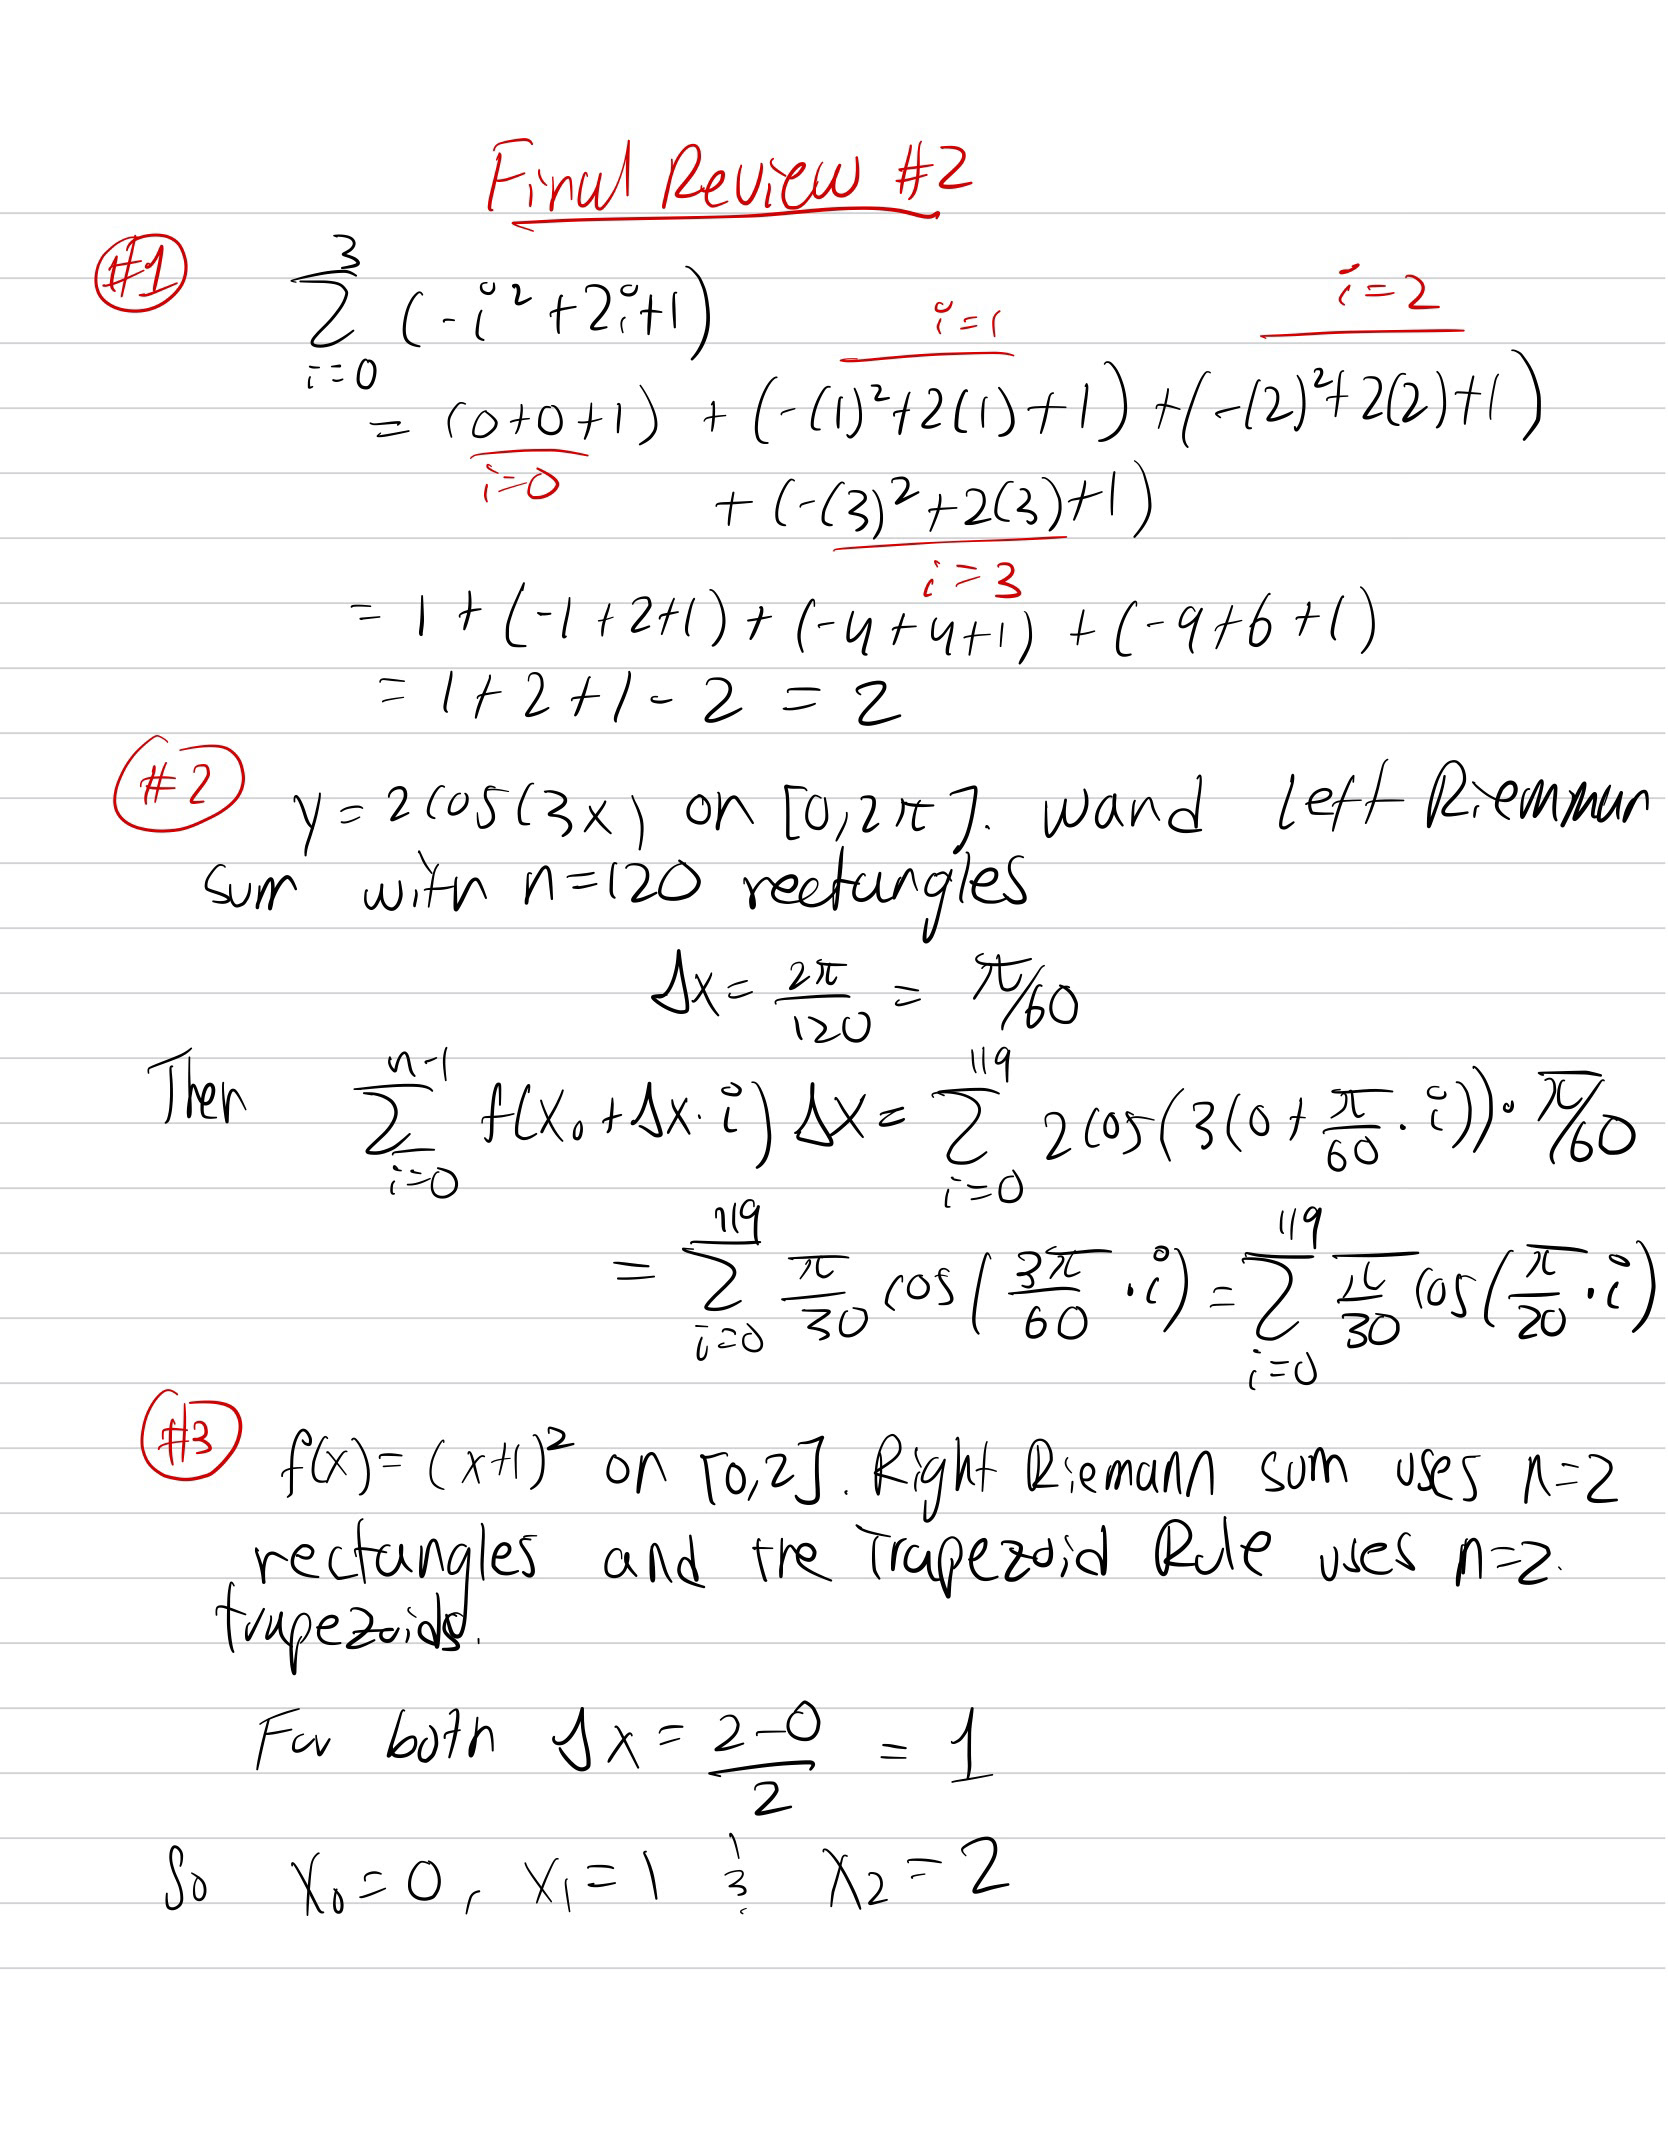 Final Review #2
#1
3
∑ (-i² + 2i + 1)
i=0
i=1 i=2
= (0+0+1) + (-(1)²+2(1)+1) + (-(2)²+2(2)+1)
i=0
+ (-(3)²+2(3)+1)
i=3
= 1 + (-1+2+1) + (-4+4+1) + (-9+6+1)
= 1+2+1-2 = 2
#2 y=2cos(3x) on [0,2π]. wand left Riemman
sum with n=120 rectangles
Δx = 2π/120 = π/60
Then ∑_{i=0}^{n-1} f(x₀+Δx·i) Δx = ∑_{i=0}^{119} 2cos(3(0+π/60·i))·π/60
= ∑_{i=0}^{119} π/30 cos(3π/60·i) = ∑_{i=0}^{119} π/30 cos(π/20·i)
#3 f(x)=(x+1)² on [0,2]. Right Riemann sum uses n=2
rectangles and the Trapezoid Rule uses n=2.
trapezoids.
For both Δx = 2-0/2 = 1
So x₀=0, x₁=1 & x₂=2